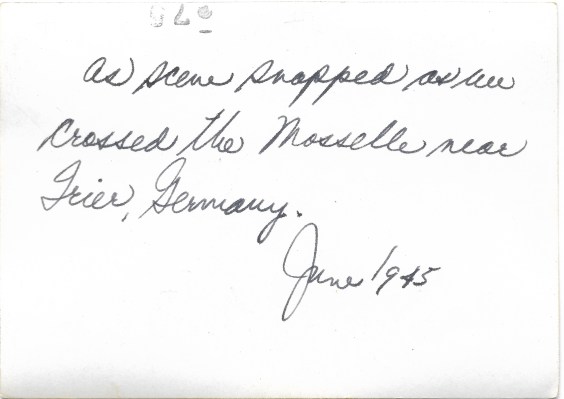 As scene snapped as we
crossed the Mosselle near
Trier, Germany.
June 1945